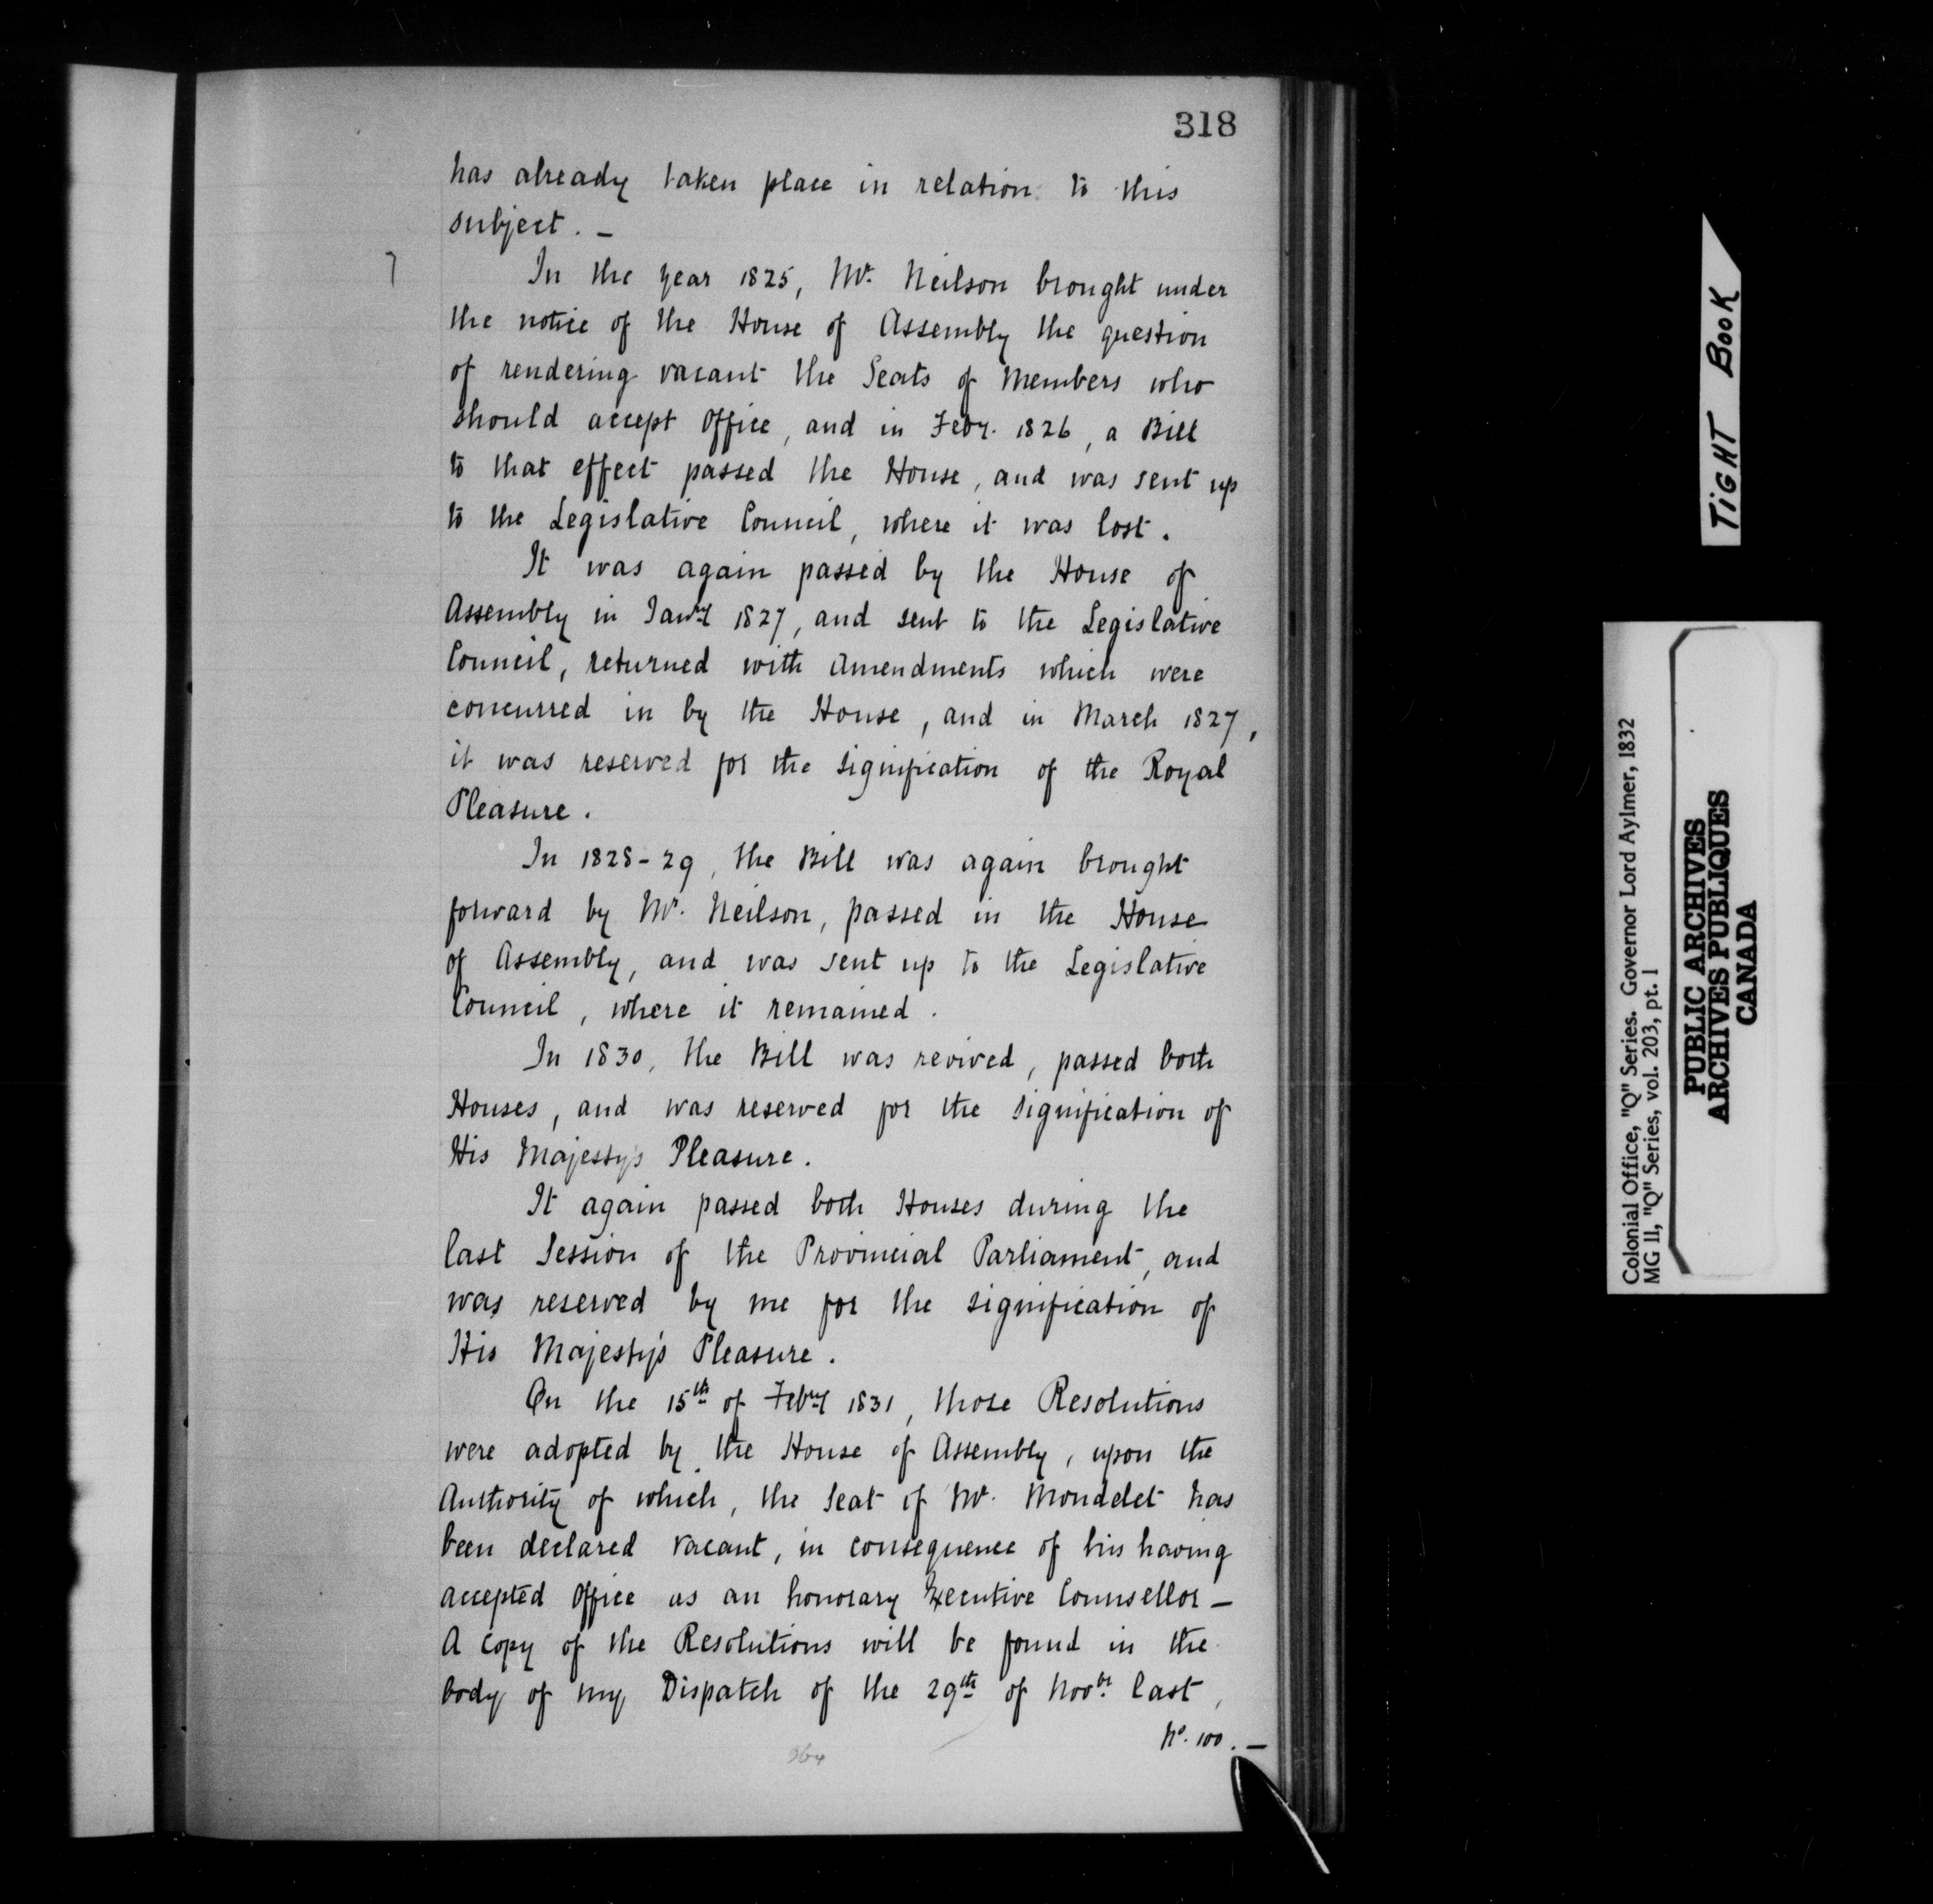 318
has already taken place in relation to this
subject. –
In the year 1825, Mr. Neilson brought under
the notice of the House of Assembly the question
of rendering vacant the Seats of Members who
should accept Office, and in Feby. 1826, a Bill
to that effect passed the House, and was sent up
to the Legislative Council, where it was lost.
It was again passed by the House of
Assembly in Jany 1827, and sent to the Legislative
Council, returned with Amendments which were
concurred in by the House, and in March 1827,
it was reserved for the signification of the Royal
Pleasure.
In 1828-29, the Bill was again brought
forward by Mr. Neilson, passed in the House
of Assembly, and was sent up to the Legislative
Council, where it remained.
In 1830, the Bill was revived, passed both
Houses, and was reserved for the signification of
His Majesty's Pleasure.
It again passed both Houses during the
last Session of the Provincial Parliament, and
was reserved by me for the signification of
His Majesty's Pleasure.
On the 15th of Feby 1831, those Resolutions
were adopted by the House of Assembly, upon the
Authority of which, the Seat of Mr. Mondelet has
been declared vacant, in consequence of his having
accepted Office as an honorary Executive Counsellor –
A copy of the Resolutions will be found in the
body of my Dispatch of the 29th of Novbr. last,
No. 100. –
364
TIGHT BOOK
Colonial Office, "Q" Series. Governor Lord Aylmer, 1832
MG 11, "Q" Series, vol. 203, pt. 1
PUBLIC ARCHIVES
ARCHIVES PUBLIQUES
CANADA